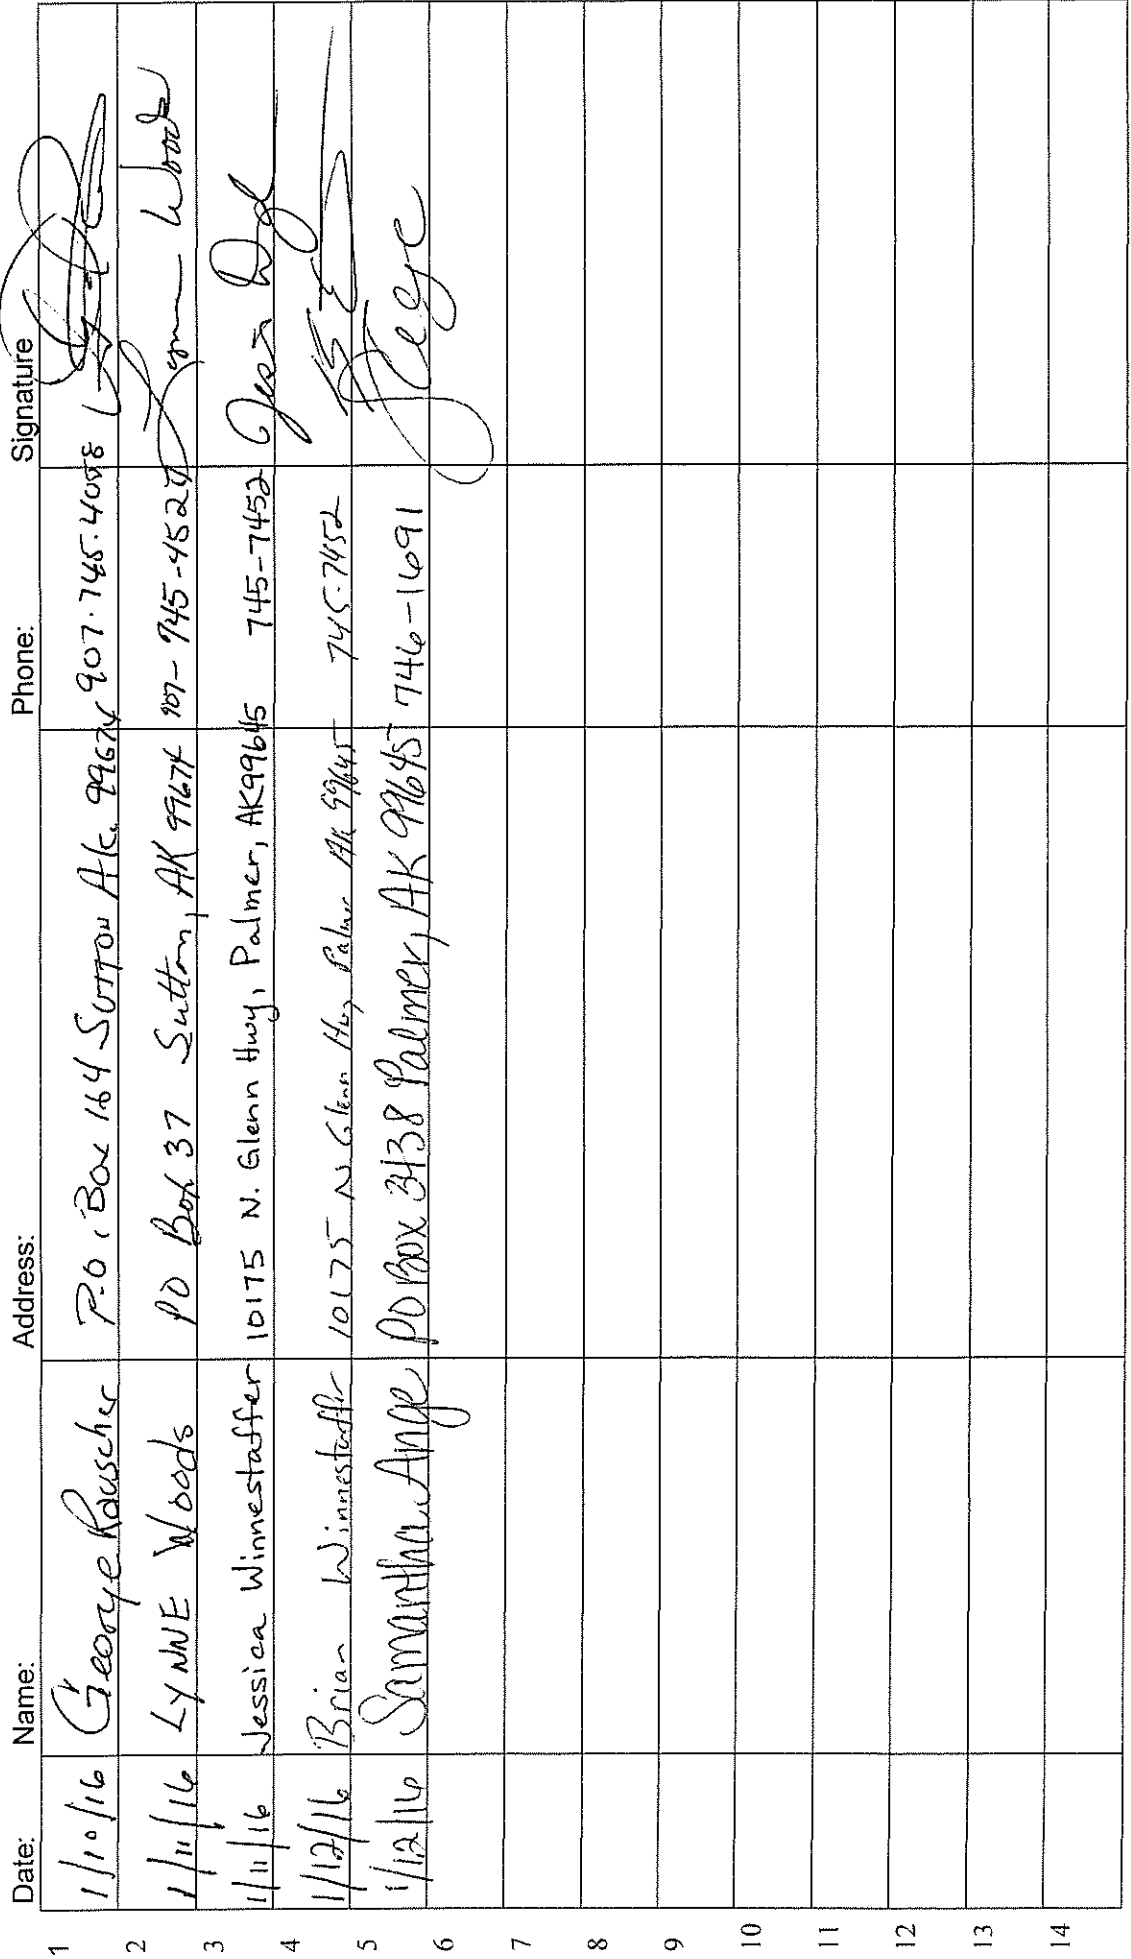 Date: Name: Address: Phone: Signature
1 1/10/16 George Rauscher P.O. Box 164 Sutton Ak. 99674 907.745.4058
2 1/11/16 LYNNE Woods PO Box 37 Sutton, AK 99674 907-745-4527 Lynne Woods
3 1/11/16 Jessica Winnestaffer 10175 N. Glenn Hwy, Palmer, AK 99645 745-7452
4 1/12/16 Brian Winnestaffer 10175 N Glenn Hwy Palmer AK 99645 745-7452
5 1/12/16 Samantha Ange PO Box 3438 Palmer, AK 99645 746-1691
6
7
8
9
10
11
12
13
14